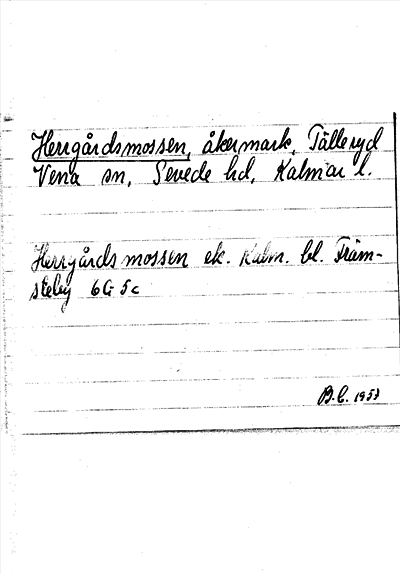 Herrgårdsmossen, åkermark, Tälleryd
Vena sn, Sevede hd, Kalmar l.
Herrgårdsmossen ek. Kalm. bl. Främ-
steby 6G 5c
B.L. 1953